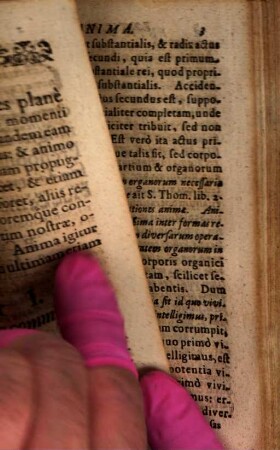 es planè
momenti
eadem eam
us: & animo
iam propug-
cet, & etiam
ioret, aliis re-
oremque con-
tim nostræ, o-
Anima igitur
ultimam etiam
NIMA. 3
t substantialis, & radix actus
ecundi, quia est primum
stantiale rei, quod propri-
substantialis. Acciden-
us secundus est, suppo-
aliter completam, unde
iciter tribuit, sed non
Est verò ita actus pri-
e talis sit, sed corpo-
artium & organorum
organorum necessaria
ait S. Thom. lib. 2.
tionis animæ. Ani-
sima inter formas re-
diversarum opera-
ntem organorum in
orporis organici
tam, scilicet se-
abentis. Dum
a sit id quo vivi-
intelligimus, pri-
um corrumpit,
uo primò vi-
elligimus, est
potentia vi-
imò vivi-
mus: er-
diver-
Gs